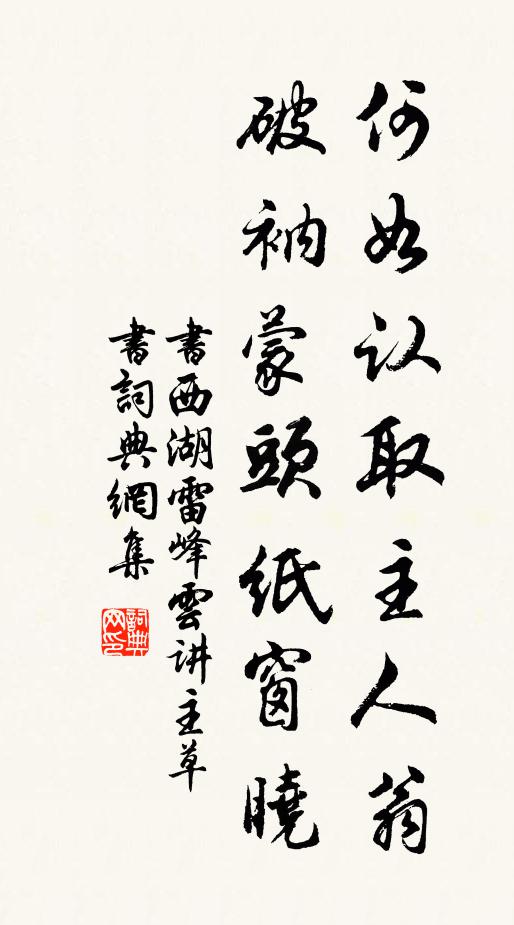 何如认取主人翁
破衲蒙頭紙窗曉
書西湖雷峰雲讲主草
書詞典網集
詞典网印